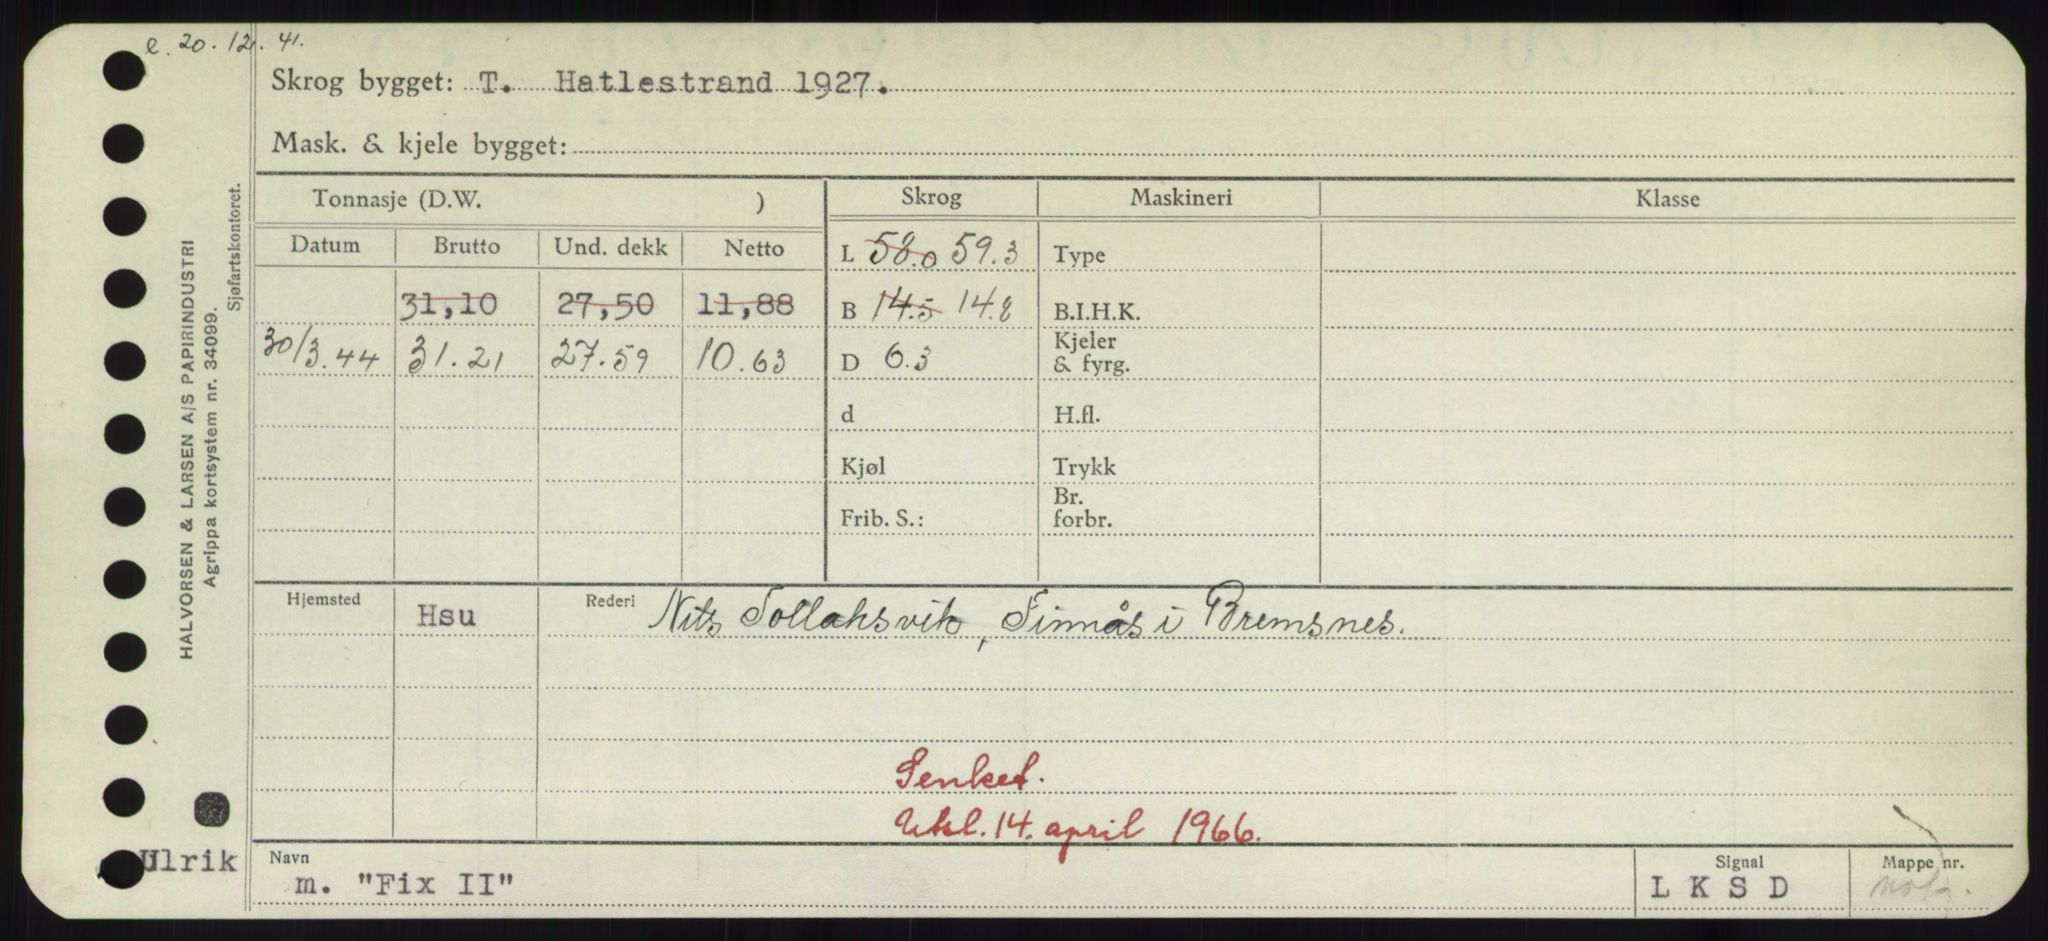 e. 20.12.41.
Skrog bygget: T. Hatlestrand 1927.
Mask. & kjele bygget:
Tonnasje (D.W. ) Skrog Maskineri Klasse
Datum Brutto Und. dekk Netto L 58.0 59.3 Type
31,10 27,50 11,88 B 14.5 14.8 B.I.H.K.
30/3.44 31.21 27.59 10.63 D 6.3 Kjeler & fyrg.
d H.fl.
Kjøl Trykk
Frib. S.: Br. forbr.
Hjemsted Hsu Rederi Nils Tollaksvik, Finnås i Bremsnes.
Senket.
Utsl. 14. april 1966.
Ulrik
Navn m. "Fix II" Signal L K S D Mappe nr.
HALVORSEN & LARSEN A/S PAPIRINDUSTRI
Agrippa kortsystem nr. 34099.
Sjøfartskontoret.